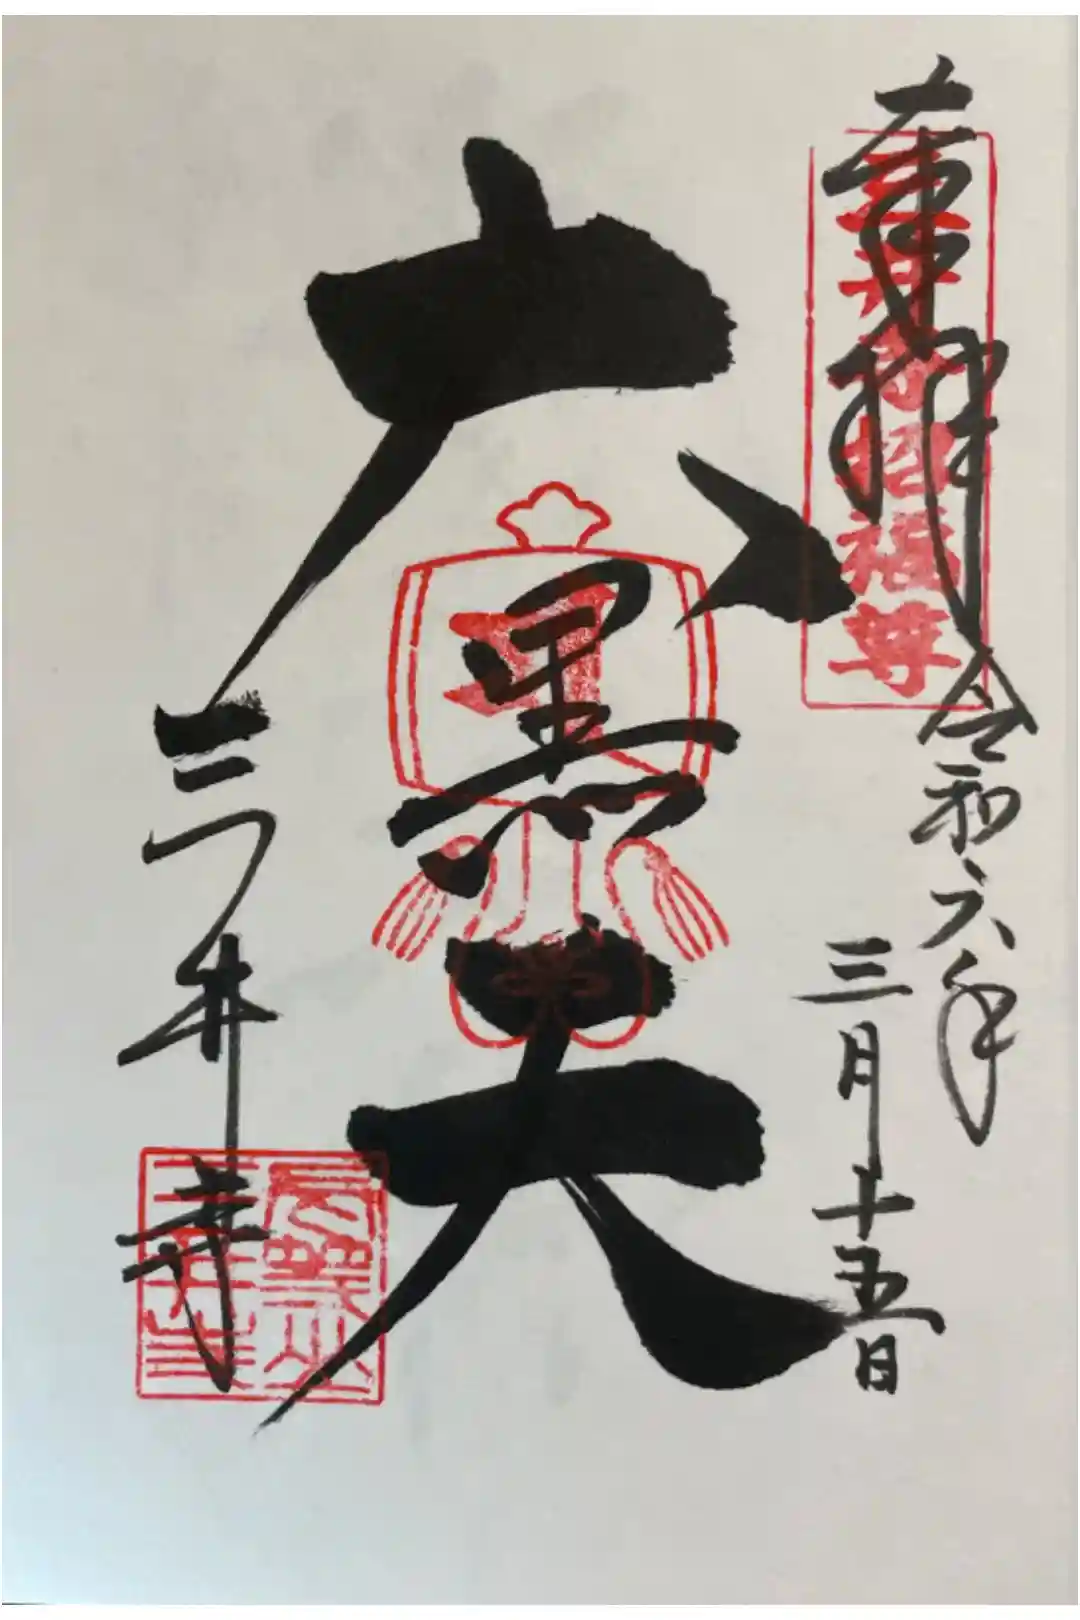 奉拝
三井寺招福尊
令和六年
三月十五日
大黒天
三井寺